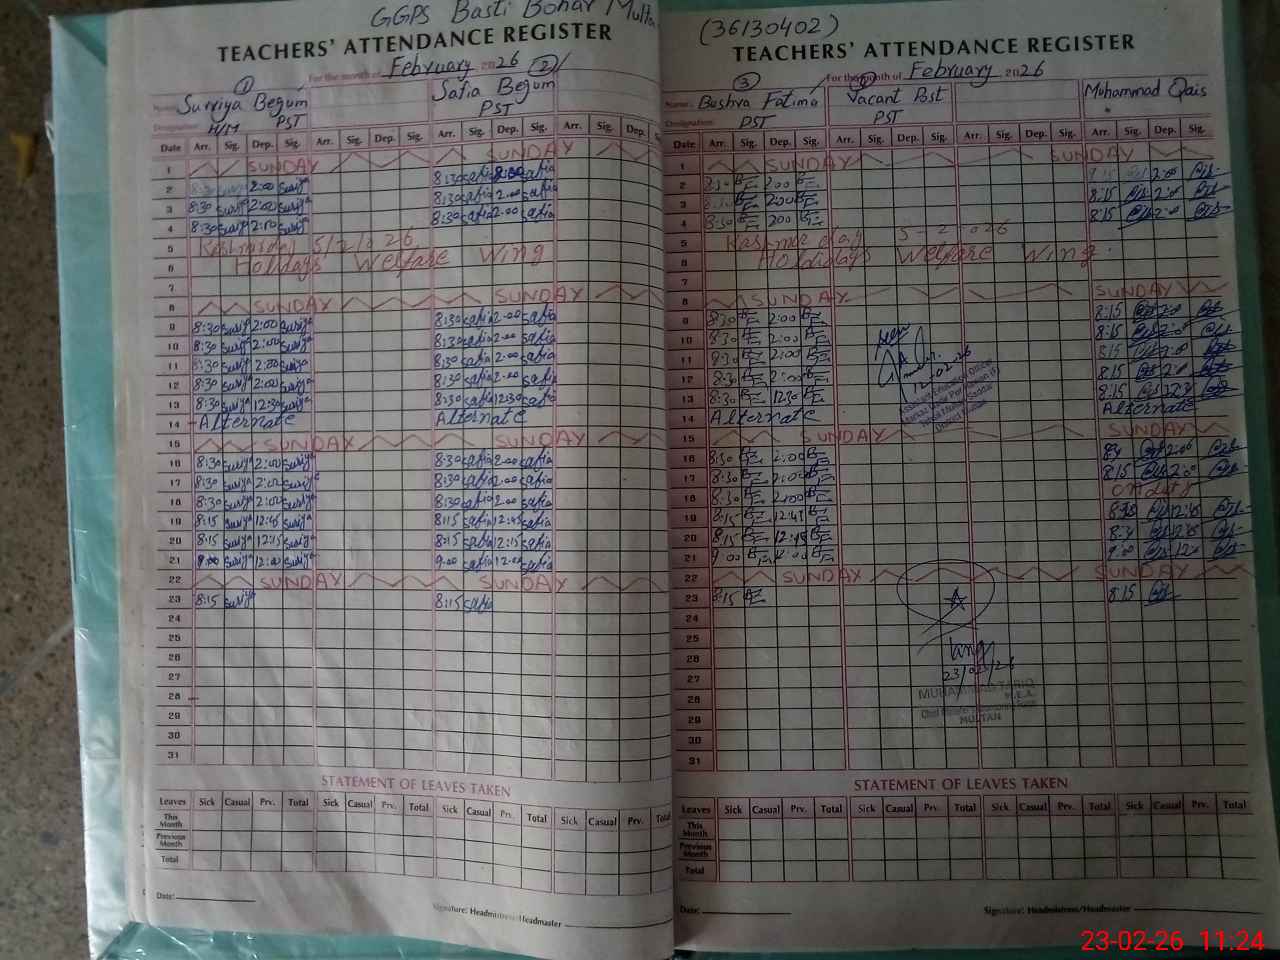 GGPS Basti Bohar Multan
TEACHERS' ATTENDANCE REGISTER
For the month of February 2026
① Surriya Begum ② Safia Begum
Designation H/M PST PST
Date Arr. Sig. Dep. Sig. Arr. Sig. Dep. Sig. Arr. Sig. Dep. Sig. Arr. Sig. Dep.
1 SUNDAY SUNDAY
2 2:00 suriya 8:30 safia safia
3 8:30 suriya 2:00 suriya 8:30 safia 2:00 safia
4 8:30 suriya 2:00 suriya 8:30 safia 2:00 safia
5 Kashmir day 5/2/2026
6 Holidays Welfare Wing
7
8 SUNDAY SUNDAY
9 8:30 suriya 2:00 suriya 8:30 safia 2:00 safia
10 8:30 suriya 2:00 suriya 8:30 safia 2:00 safia
11 8:30 suriya 2:00 suriya 8:30 safia 2:00 safia
12 8:30 suriya 2:00 suriya 8:30 safia 2:00 safia
13 8:30 suriya 12:30 suriya 8:30 safia 12:30 safia
14 Alternate Alternate
15 SUNDAY SUNDAY
16 8:30 suriya 2:00 suriya 8:30 safia 2:00 safia
17 8:30 suriya 2:00 suriya 8:30 safia 2:00 safia
18 8:30 suriya 2:00 suriya 8:30 safia 2:00 safia
19 8:15 suriya 12:45 suriya 8:15 safia 12:45 safia
20 8:15 suriya 12:15 suriya 8:15 safia 12:15 safia
21 9:00 suriya 12:00 suriya 9:00 safia 12:00 safia
22 SUNDAY SUNDAY
23 8:15 suriya 8:15 safia
24
25
26
27
28
29
30
31
STATEMENT OF LEAVES TAKEN
Leaves Sick Casual Prv. Total Sick Casual Prv. Total Sick Casual Prv. Total Sick Casual Prv. Total
This Month
Previous Month
Total
Date:
Signature: Headmistress/Headmaster
(36130402)
TEACHERS' ATTENDANCE REGISTER
For the month of February 2026
Name: ③ Bushra Fatima Vacant Post Muhammad Qais
Designation PST PST
Date Arr. Sig. Dep. Sig. Arr. Sig. Dep. Sig. Arr. Sig. Dep. Sig. Arr. Sig. Dep. Sig.
1 SUNDAY SUNDAY
2 8:30 BF 2:00 BF 8:15 2:00
3 8:30 BF 2:00 BF 8:15 2:00
4 8:30 BF 200 BF 8:15 2:00
5 Kashmir day 5-2-2026
6 Holidays Welfare Wing.
7
8 SUNDAY SUNDAY
9 8:30 BF 2:00 BF 8:15 2:00
10 8:30 BF 2:00 BF 8:15 2:00
11 8:30 BF 2:00 BF 8:15 2:00
12 8:30 BF 2:00 BF 8:15 2:00
13 8:30 BF 12:30 BF 8:15
14 Alternate Alternate
15 SUNDAY SUNDAY
16 8:30 BF 2:00 BF 2:00
17 8:30 BF 2:00 BF 8:15 2:00
18 8:30 BF 2:00 BF On duty
19 8:15 BF 12:45 BF
20 8:15 BF BF
21 9:00 BF 12:00 BF 9:00
22 SUNDAY SUNDAY
23 8:15 BF 8:15
24
25
26
27
28
29
30
31
12-02-26
23/02/26
MUHAMMAD TARIQ
M.E.A.
MULTAN
STATEMENT OF LEAVES TAKEN
Leaves Sick Casual Prv. Total Sick Casual Prv. Total Sick Casual Prv. Total Sick Casual Prv. Total
This Month
Previous Month
Total
Date:
Signature: Headmistress/Headmaster
23-02-26 11:24